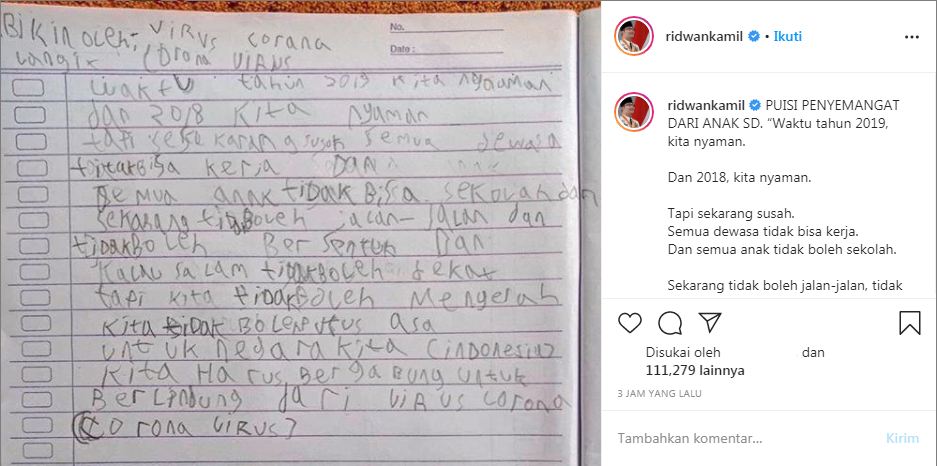 BIKIN OLEH: VIRUS corona
Langit Corona VIRUS
No.
Date :
waktu tahun 2019 kita nyaman
dan 2018 kita nyaman
tapi sekarang susah semua dewasa
tidak Bisa kerja DAN
semua anak tidak Bisa sekolah dan
sekarang tidak Boleh jalan-jalan dan
tidak BoLeh Bersentuh Dan
Kalau salam tidak Boleh dekat
tapi kita tidak Boleh Menyerah
kita tidak BoLeh Putus asa
untuk negara kita (indonesia)
Kita Harus Bergabung untuk
BerLindung dari VIRUS corona
(Corona VIRUS)
ridwankamil • Ikuti
ridwankamil PUISI PENYEMANGAT
DARI ANAK SD. “Waktu tahun 2019,
kita nyaman.
Dan 2018, kita nyaman.
Tapi sekarang susah.
Semua dewasa tidak bisa kerja.
Dan semua anak tidak boleh sekolah.
Sekarang tidak boleh jalan-jalan, tidak
Disukai oleh dan
111,279 lainnya
3 JAM YANG LALU
Tambahkan komentar...
Kirim